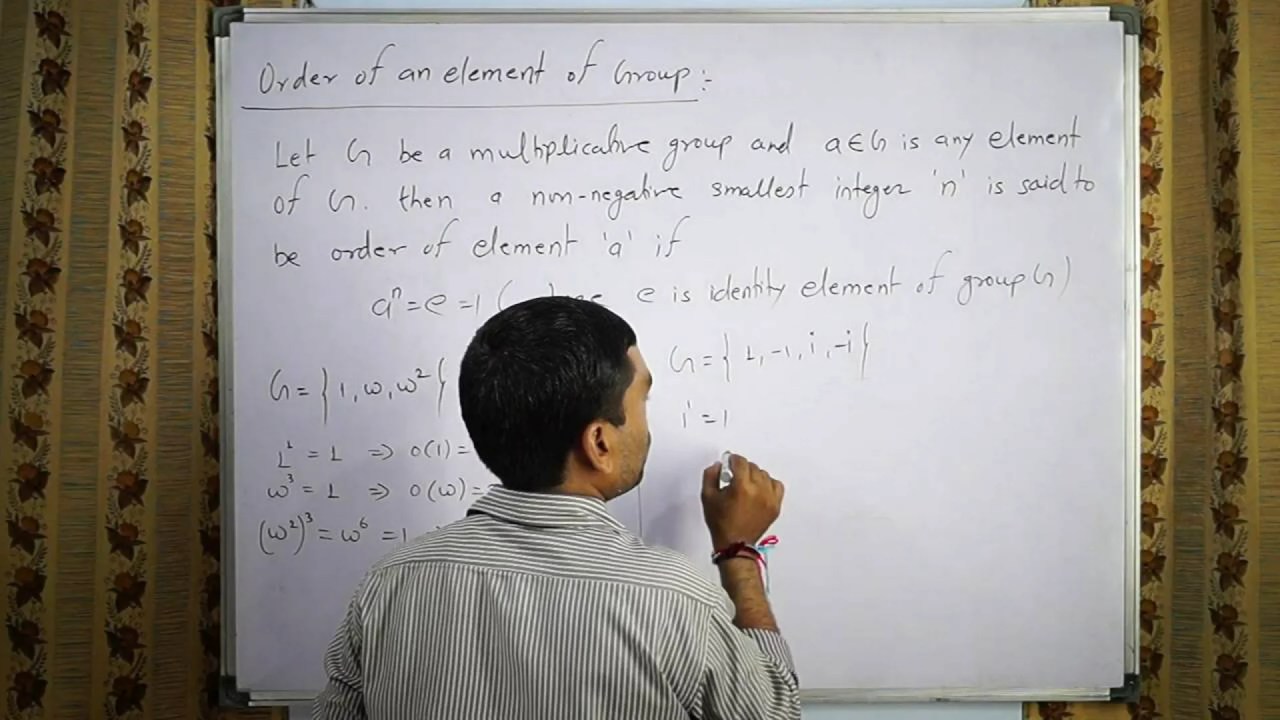 Order of an element of Group :-
Let G be a multiplicative group and a∈G is any element
of G. then a non-negative smallest integer 'n' is said to
be order of element 'a' if
aⁿ = e = 1 ( e is identity element of group G)
G = { 1, ω, ω² }
1¹ = 1 ⇒ o(1) =
ω³ = 1 ⇒ o(ω) =
(ω²)³ = ω⁶ = 1
G = { 1, -1, i, -i }
1¹ = 1